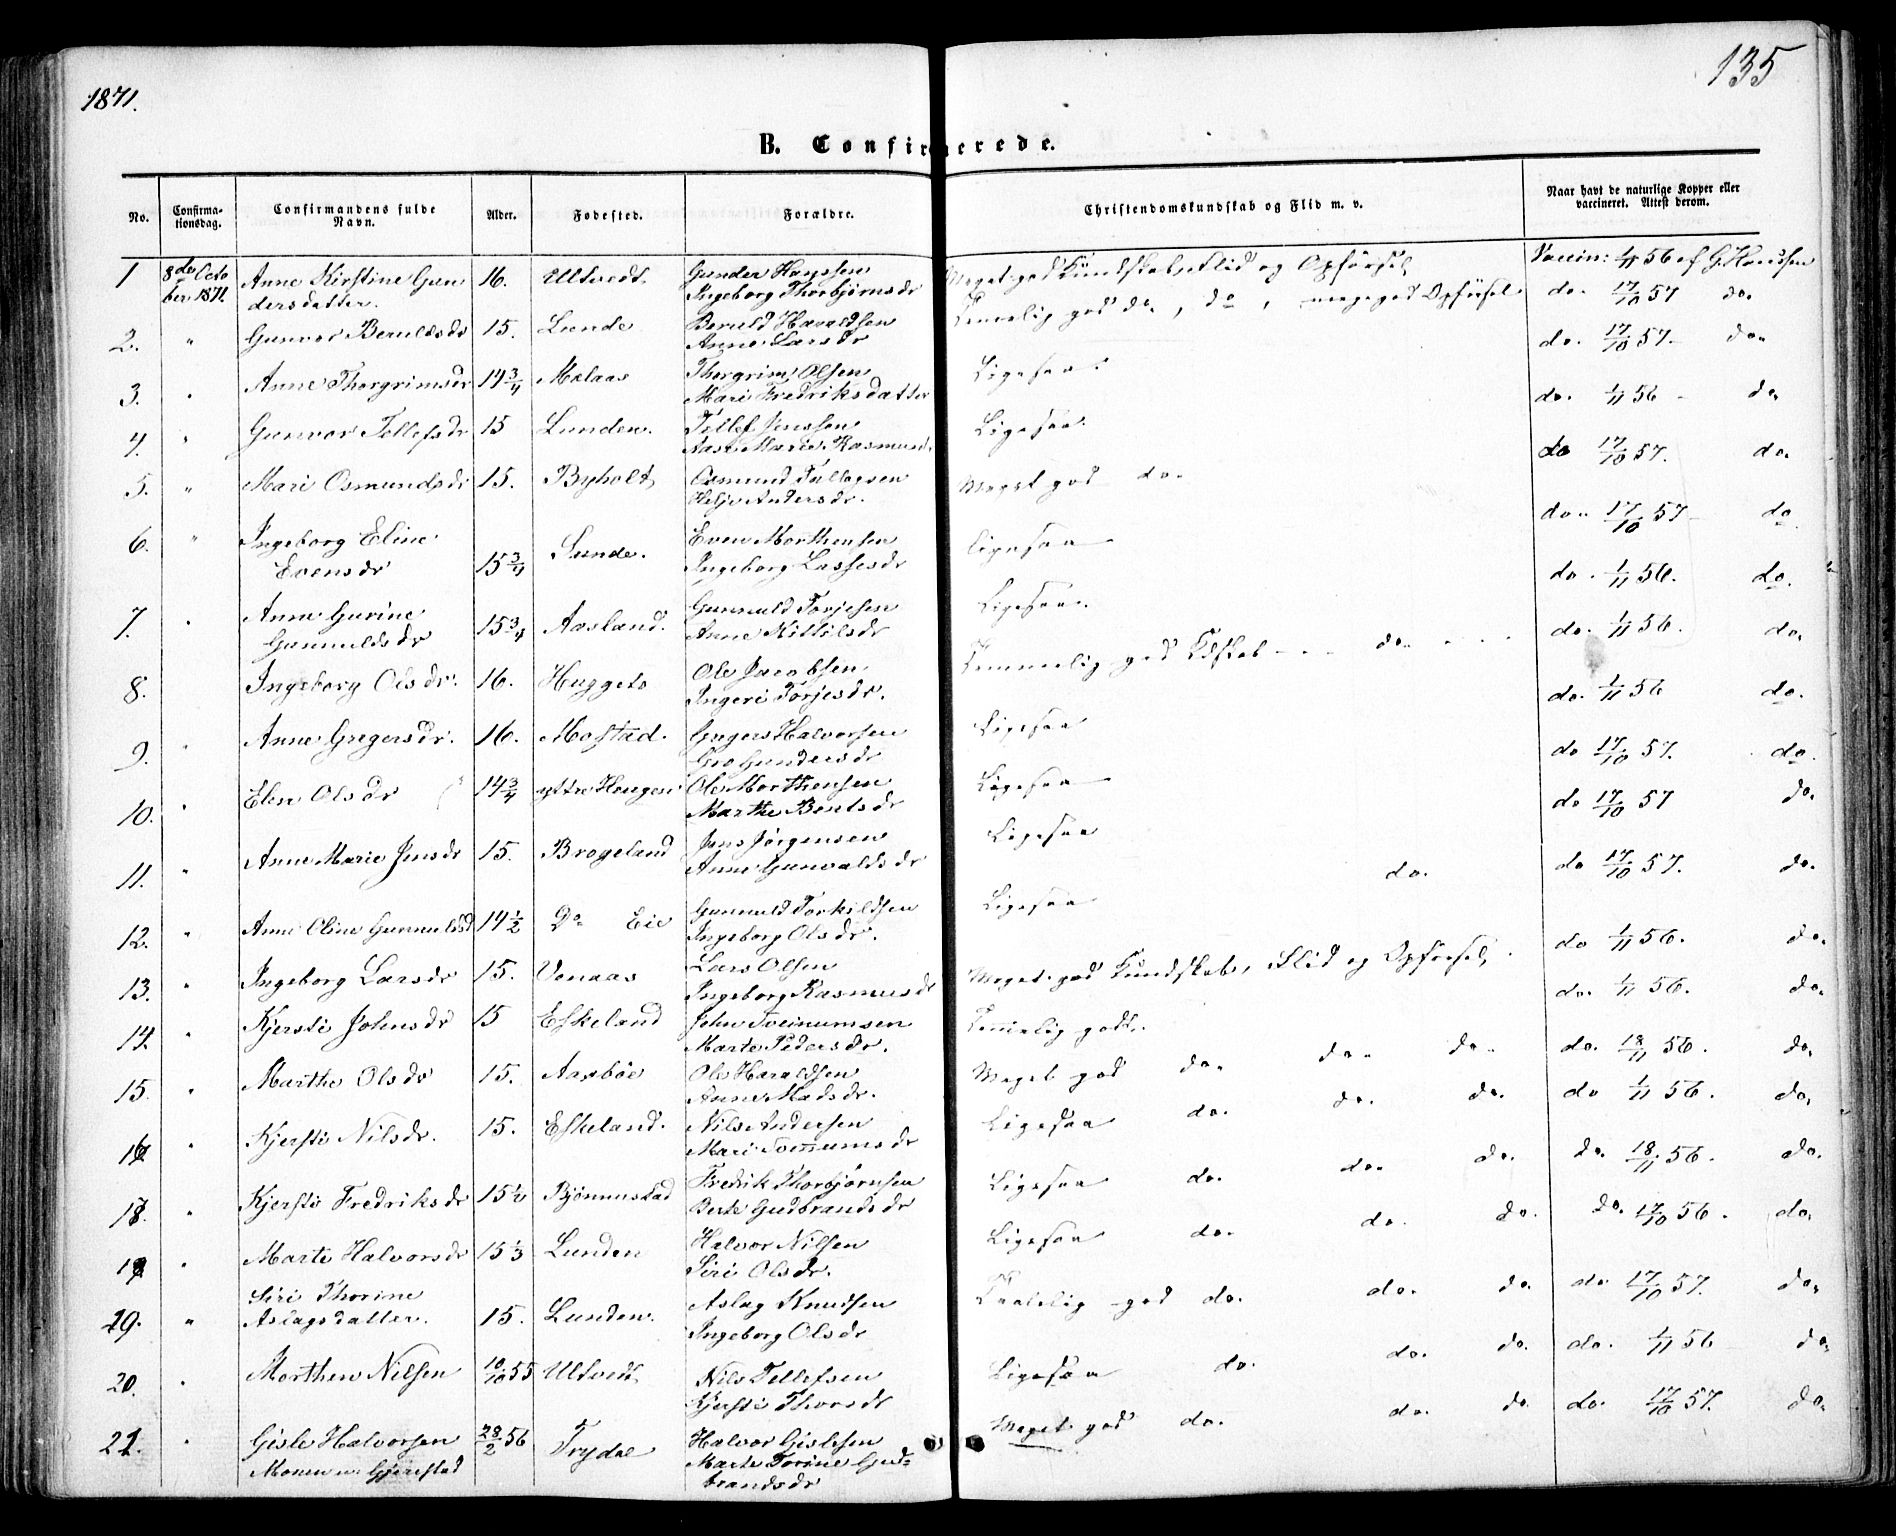 1871.
135
B. Confirmerede.
No.
Confirma-
tionsdag.
Confirmandens fulde
Navn.
Alder.
Fødested.
Forældre.
Christendomskundskab og Flid m. v.
Naar havt de naturlige Kopper eller
vaccineret. Attest derom.
1 8de Octo Anne Kirstine Gun 16. Ultvedt Gunder Hansen Meget god Kundskab, Flid og Opførsel Vaccin: 1/11 56 af G. Hansen
ber 1871. dersdatter. Ingeborg Thorbjørnsdr
2. " Gunvor Beruldsdr 15. Lunde Beruld Haraldsen Temmelig god do, do, meget god Opførsel do. 17/10 57 do.
Anne Larsdr
3. " Anne Thorgrimsdr 14 3/4 Molaas Thorgrim Olsen Ligesaa. do. 17/10 57. do.
Mari Fredriksdatter
4. " Gunvor Tellefsdr 15 Lunden. Tellef Jenssen Ligesaa. do. 1/11 56 do.
Aase Marie Rasmusdr
5. " Mari Osmundsdr 15. Byholt Osmund Tallagsen Meget god do. do 17/10 57. do.
Helje Andersdr.
6. " Ingeborg Eline Even Morthensen ligesaa do. 17/10 57 do.
Evensdr 15 3/4 Sunde. Ingeborg Lassesdr
7. " Anne Gurine Gunnuld Torjesen Ligesaa. do. 1/11 56. do.
Gunnuldsdr 15 3/4 Aasland. Anne Kittilsdr
8. " Ingeborg Olsdr. 16. Huggeto Ole Jacobsen Temmelig god Kdskab do. do. 1/11 56. do.
Ingeri Torjesdr.
9. " Anne Gregersdr. 16. Mostad. Gregers Halvorsen Ligesaa do. 1/11 56 do.
Gro Gundersdr
10. " Elen Olsdr 14 3/4 ytre Haugen Ole Morthensen Ligesaa do 17/10 57. do.
Marthe Bentsdr
11. " Anne Marie Jensdr 15. Brogeland Jens Jørgensen Ligesaa do 17/10 57 do.
Anne Gunvaldsdr
12. " Anne Oline Gunnuldsd 14 1/2 Do Eie Gunnuld Torkildsen Ligesaa do. do 17/10 57. do.
Ingeborg Olsdr.
13. " Ingeborg Larsdr 15. Vonaas Lars Olsen Meget god Kundskab, Flid og Opførsel, do 1/11 56. do.
Ingeborg Rasmusdr
14. " Kjersti Johnsdr 15 Eskeland John Tveinumsen Temmelig godt. do. 1/11 56. do.
Marte Pedersdr.
15. " Marthe Olsdr 15. Aasbøe Ole Haraldsen Meget god do. do. do. do. 18/11 56. do.
Anne Madsdr.
16 " Kjersti Nilsdr. 15. Eskeland. Nils Andersen Ligesaa do. do. do. do 1/11 56. do.
Mari Tveinumsdr
17. " Kjersti Fredriksdr 15 1/2 Bjønnustad Fredrik Thorbjørnsen Ligesaa do. do. do. do. 18/11 56. do.
Berte Gudbrandsdr
18 " Marte Halvorsdr 15 1/3 Lunden Halvor Nilsen Ligesaa do. do. do. do. 17/10 56. do.
Siri Olsdr.
19. " Siri Thorine Aslag Knudsen Temmelig god do. do. do. do. 17/10 57. do.
Aslagsdatter. 15. Lunden. Ingeborg Olsdr
20. " Morthen Nilsen 10/10 55 Ultvedt Nils Tellefsen Ligesaa do. do. do. do. 1/11 56 do.
Kjersti Thorsdr
21. " Gisle Halvorsen 28/2 56 Trydal Halvor Gislesen Meget god do. do. do. do. 17/10 57. do.
Gjerestad Marte Torine Gud-
brandsdr